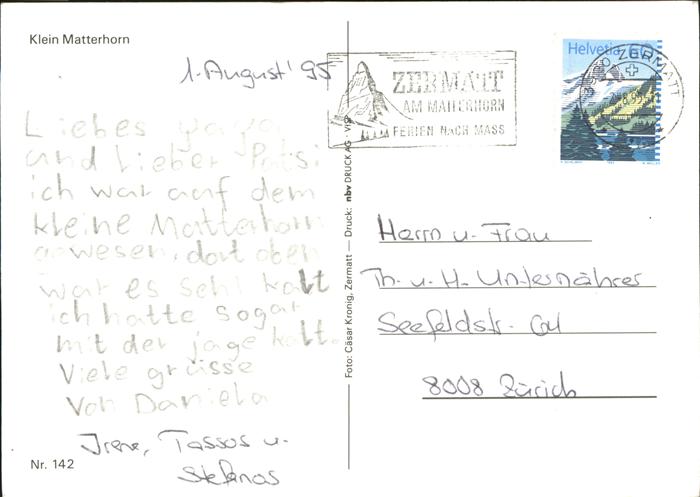 Klein Matterhorn
1. August '95
Liebes yaya
und Lieber Patsi
ich war auf dem
kleine Matterhorn
gewesen, dort oben
war es sehl kalt
ich hatte sogar
mit der jage kalt.
Viele grüsse
Von Daniela
Irene, Tassos u.
Stefanos
Nr. 142
Foto: Cäsar Kronig, Zermatt — Druck: nbv DRUCK AG
ZERMATT
AM MATTERHORN
FERIEN NACH MASS
Helvetia 60
ZERMATT
Herrn u. Frau
Th. u. H. Unternährer
Seefeldstr.
8008 Zürich